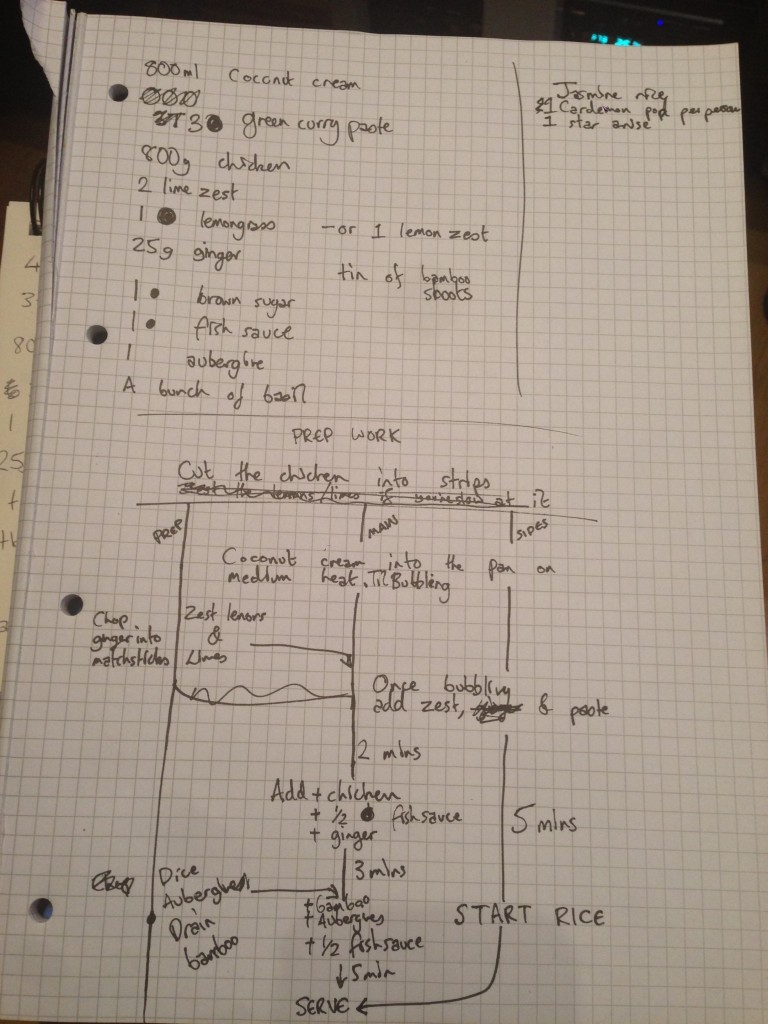 800ml Coconut cream
3 green curry paste
800g chicken
2 lime zest
1 lemongrass - or 1 lemon zest
25g ginger
tin of bamboo
shoots
1 brown sugar
1 fish sauce
1 aubergine
A bunch of basil
Jasmine rice
1 Cardemon pod per person
1 star anise
PREP WORK
Cut the chicken into strips
at it
PREP
MAIN
SIDES
Coconut cream into the pan on
medium heat. Til Bubbling
Chop
ginger into
matchsticks
Zest lemons
&
Limes
Once bubbling
add zest, & paste
2 mins
Add + chicken
+ 1/2 fishsauce
+ ginger
5 mins
3 mins
Dice
Drain
bamboo
+ Bamboo
+ 1/2 fishsauce
START RICE
5min
SERVE